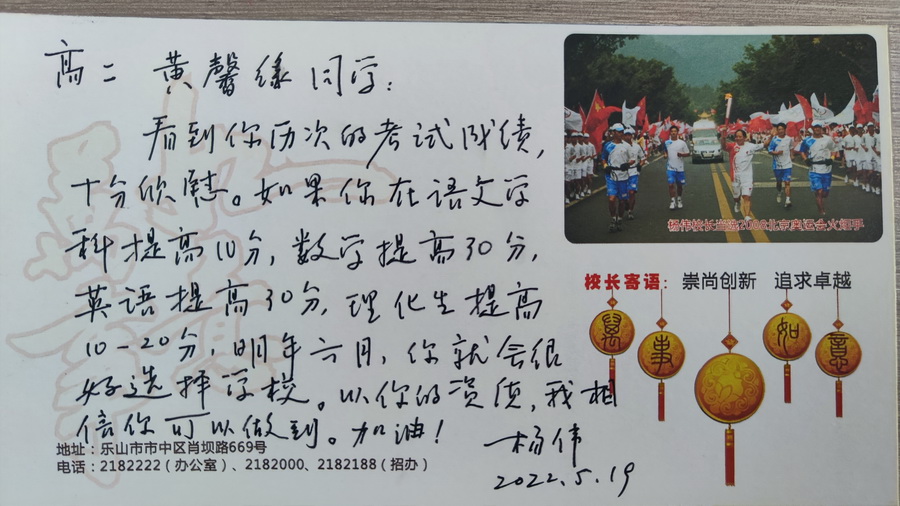 高二 黄馨缘同学：
看到你历次的考试成绩，
十分欣慰。如果你在语文学
科提高10分，数学提高30分，
英语提高30分，理化生提高
10-20分，明年六月，你就会很
好选择学校。以你的资质，我相
信你可以做到。加油！
杨伟
2022.5.19
地址：乐山市市中区肖坝路669号
电话：2182222（办公室）、2182000、2182188（招办）
杨伟校长当选2008北京奥运会火炬手
校长寄语：崇尚创新 追求卓越
万事如意